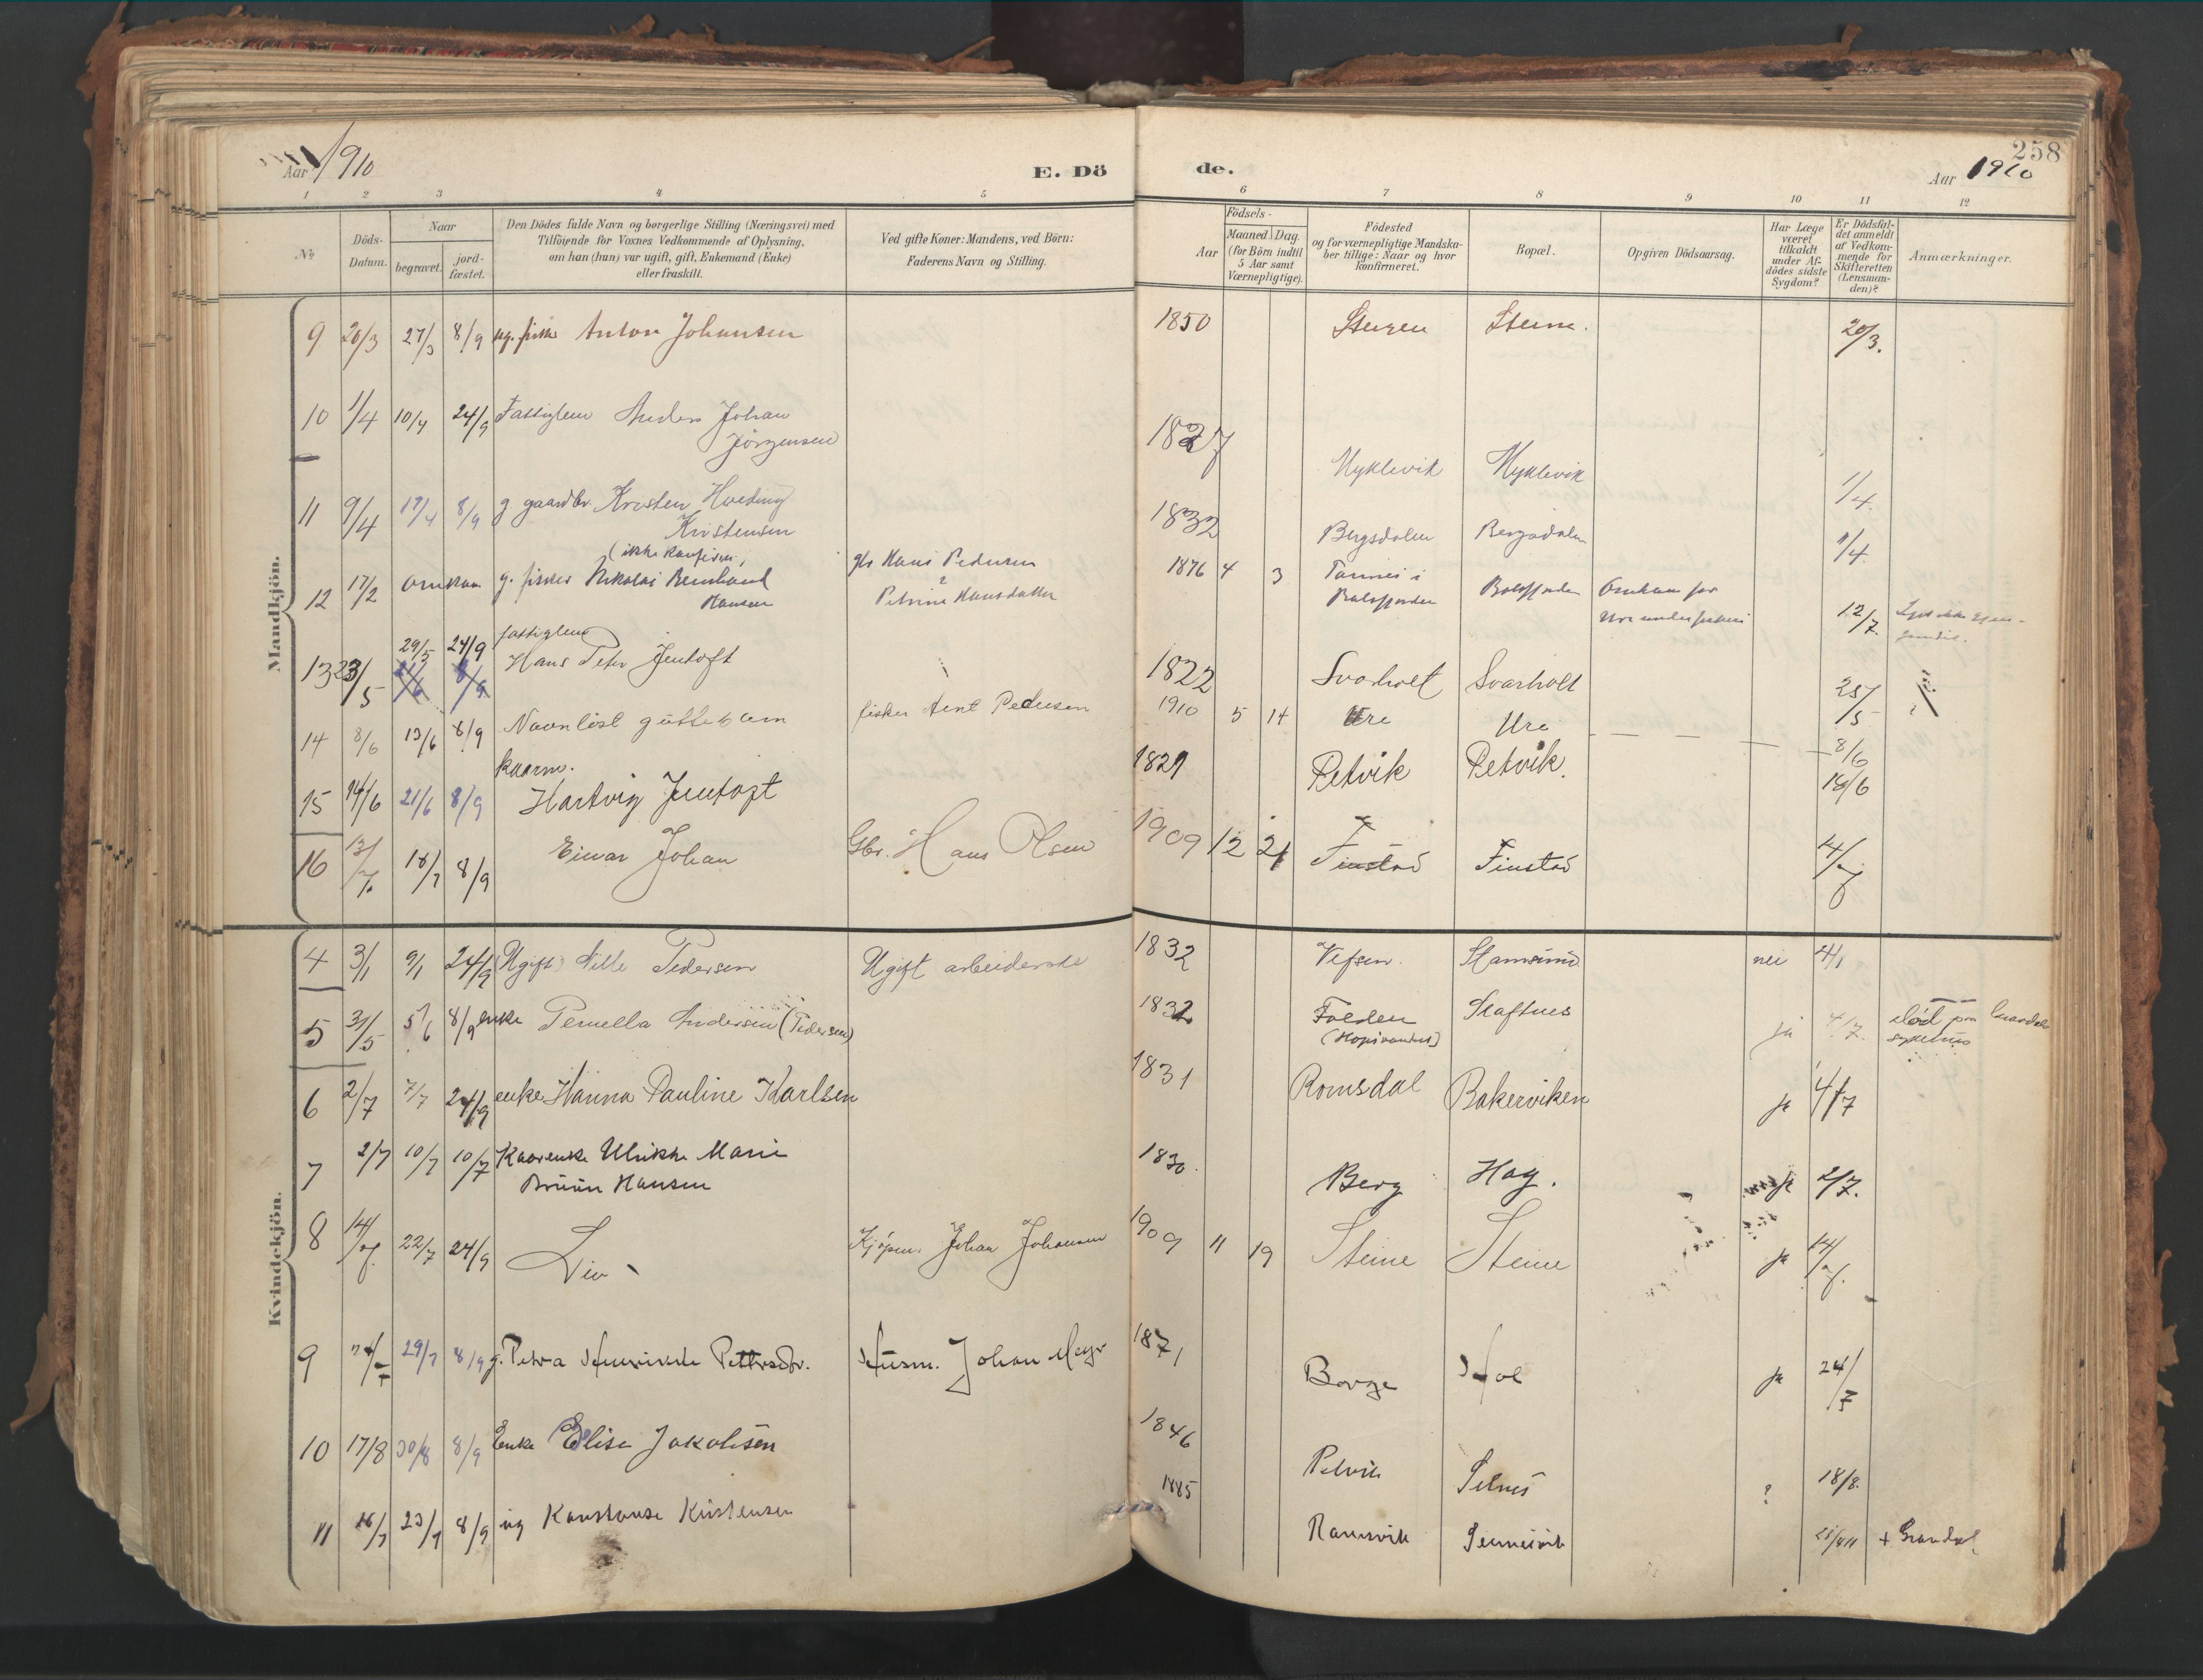 Aar 1910
E. Dö
de.
258
Aar 1910
1 2 3 4 5 6 7 8 9 10 11 12
No
Döds-Datum.
Naar
begravet.
jord-fæstet.
Den Dödes fulde Navn og borgerlige Stilling (Næringsvei) med
Tilföiende for Voxnes Vedkommende af Oplysning,
om han (hun) var ugift, gift, Enkemand (Enke)
eller fraskilt.
Ved gifte Koner: Mandens, ved Börn:
Faderens Navn og Stilling.
Aar
Födsels-
Maaned. Dag.
(for Börn indtil
5 Aar samt
Værnepligtige).
Födested
og for værnepligtige Mandska-
ber tillige: Naar og hvor
konfirmeret.
Bopæl.
Opgiven Dödsaarsag.
Har Læge
været
tilkaldt
under Af-
dödes sidste
Sygdom?
Er Dödsfal-
det anmeldt
af Vedkom-
mende for
Skifteretten
(Lensman-
den)?
Anmærkninger.
Mandkjön.
9 20/3 27/3 8/9 ug. fisker Anton Johansen 1850 Steine. 20/3.
10 1/4 10/4 24/9 Fattiglem Anders Johan
Jörgensen 1827 Myklevik Myklevik 1/4.
11 9/4 17/4 8/9 g gaardbr. Kristen Hveding
Kristensen 1832 Bergsdalen Bergsdalen
(ikke konfirm.)
12 17/2 omkom g. fisker Nikolai Bernhard
Hansen
Hans Pedersen
Petrine Hansdatter 1876 4 3
i
Balsfjorden Balsfjorden Omkom paa
Ure under fiskeri 12/7
fattiglem
13 23/5 29/5 24/9 Hans Peter Jentoft 1822 Svarholt Svarholt 25/5
14 8/6 13/6 8/9 Navnlöst guttebarn fisker Arnt Pedersen 1910 5 14 Ure Ure 8/6
kaarm.
15 14/6 21/6 8/9 Hartvig Jentoft 1829 Petvik Petvik. 18/6
16 13/7. 18/7 8/9 Einar Johan Gbr. Hans Olsen 1909 12 21 Finstad Finstad 14/7
Kvindekjön.
4 3/1 9/1 24/9 (Ugift) Nille Pedersen Ugift arbeiderske 1832 Vefsen. Stamsund nei 4/1
5 31/5 5/6 8/9 enke Pernella Andersen (Pedersen) 1832 Folden Skafnes ja 4/7. död paa Gravdal
sykehus
6 2/7 7/7 24/9 enke Hanna Pauline Karlsen 1831 Romsdal Bakerviken ja 4/7
7 2/7 10/7 10/7 Kaarenke Ulrikke Marie
Bruun Hansen 1830. Berg Hag. ja 2/7.
8 14/7. 22/7 24/9 Liv Kjöpm. Johan Johansen 1909 11 19 Steine Steine ja 14/7.
9 24/7 29/7 8/9 g. Petra Henrikke Pettersdtr. Husm. Johan Meyer 1871 Borge Hol ja 24/7
10 17/8 30/8 8/9 Enke Elise Jakobsen 1846 Petvik Selnes ? 18/8.
11 16/7 23/7 8/9 ug Konstanse Kristensen 1885 Ramsvik + Gravdal